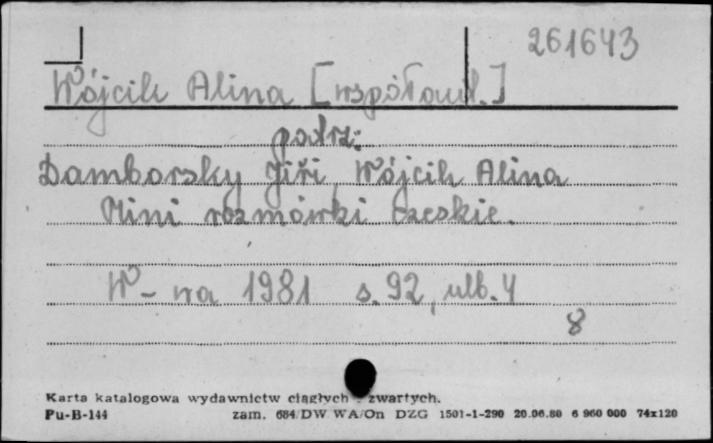 261643
Wójcik Alina [współaut.]
podrz:
Damborsky Jiři, Wójcik Alina
Mini rozmówki czeskie.
W-wa 1981 s. 92, ulb. 4
8
Karta katalogowa wydawnictw ciągłych i zwartych.
Pu-B-144 zam. 684/DW WA/On DZG 1501-1-290 20.06.80 6 960 000 74x120